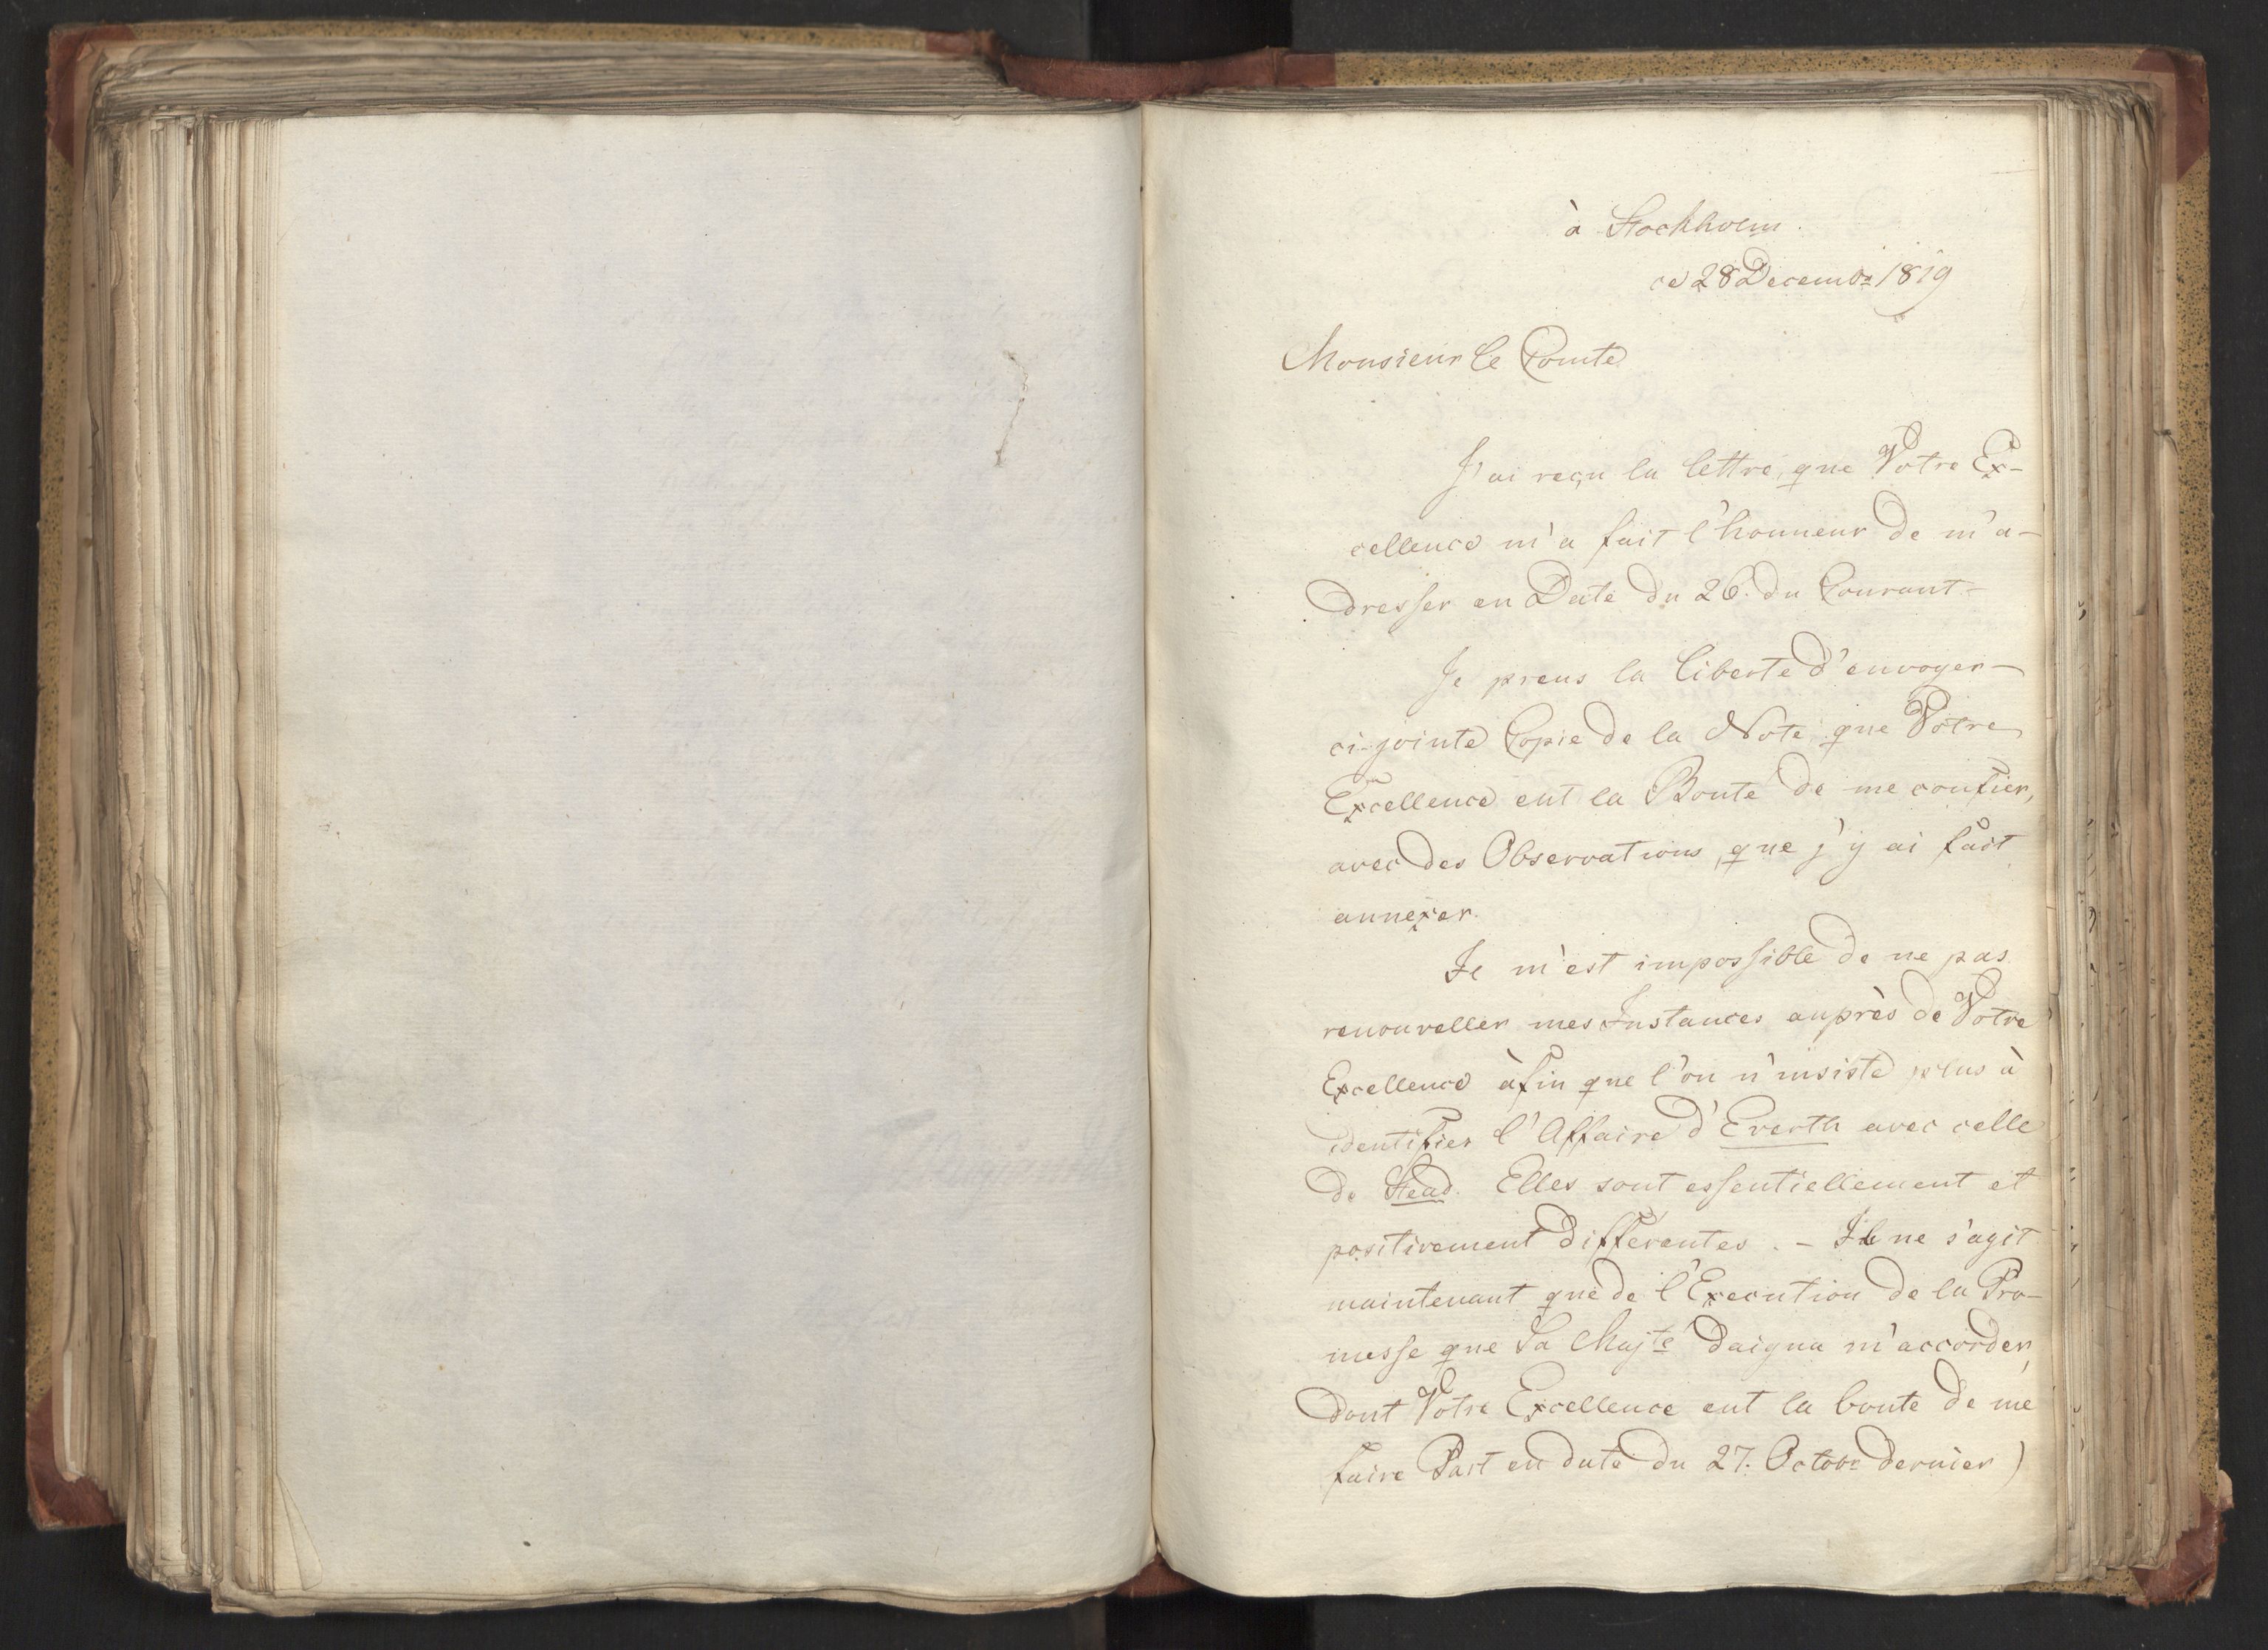 à Stockholm.
ce 28 Decembr 1819
Monsieur le Comte
J'ai reçu la lettre, que Votre Ex-
cellence m'a fait l'honneur de m'a-
dresser en Date du 26. du Courant-
Je prens la liberte d'envoyer-
ci-jointe Copie de la Note que Votre
Excellence eut la Bonté de me confier,
avec des Observations, que j'y ai fait
annexer.
Il m'est impossible de ne pas
renouveller mes Instances auprès de Votre
Excellence àfin que l'on n'insiste plus à
identifier l'Affaire d'Everth avec celle
de Stead. Elles sont essentiellement et
positivement differentes. - Il ne s'agit
maintenant que de l'Execution de la Pro-
messe que Sa Majté daigna m'accorder,
dont Votre Excellence eut la bonte de me
faire Part en date du 27. Octobr dernier)